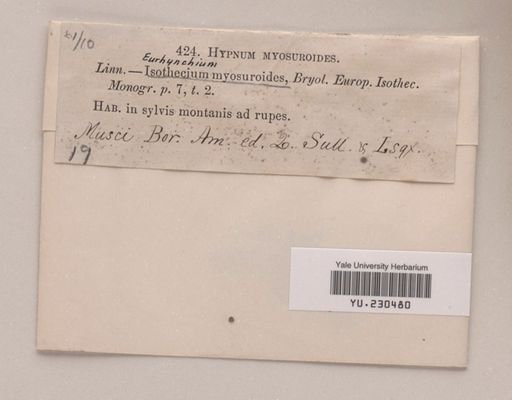 424. HYPNUM MYOSUROIDES.
Eurhynchium
Linn.—Isothecium myosuroides, Bryol. Europ. Isothec.
Monogr. p. 7, t. 2.
HAB. in sylvis montanis ad rupes.
Musci Bor. Am. ed. 2. Sull. & Lsqx.
19
Yale University Herbarium
YU.230480